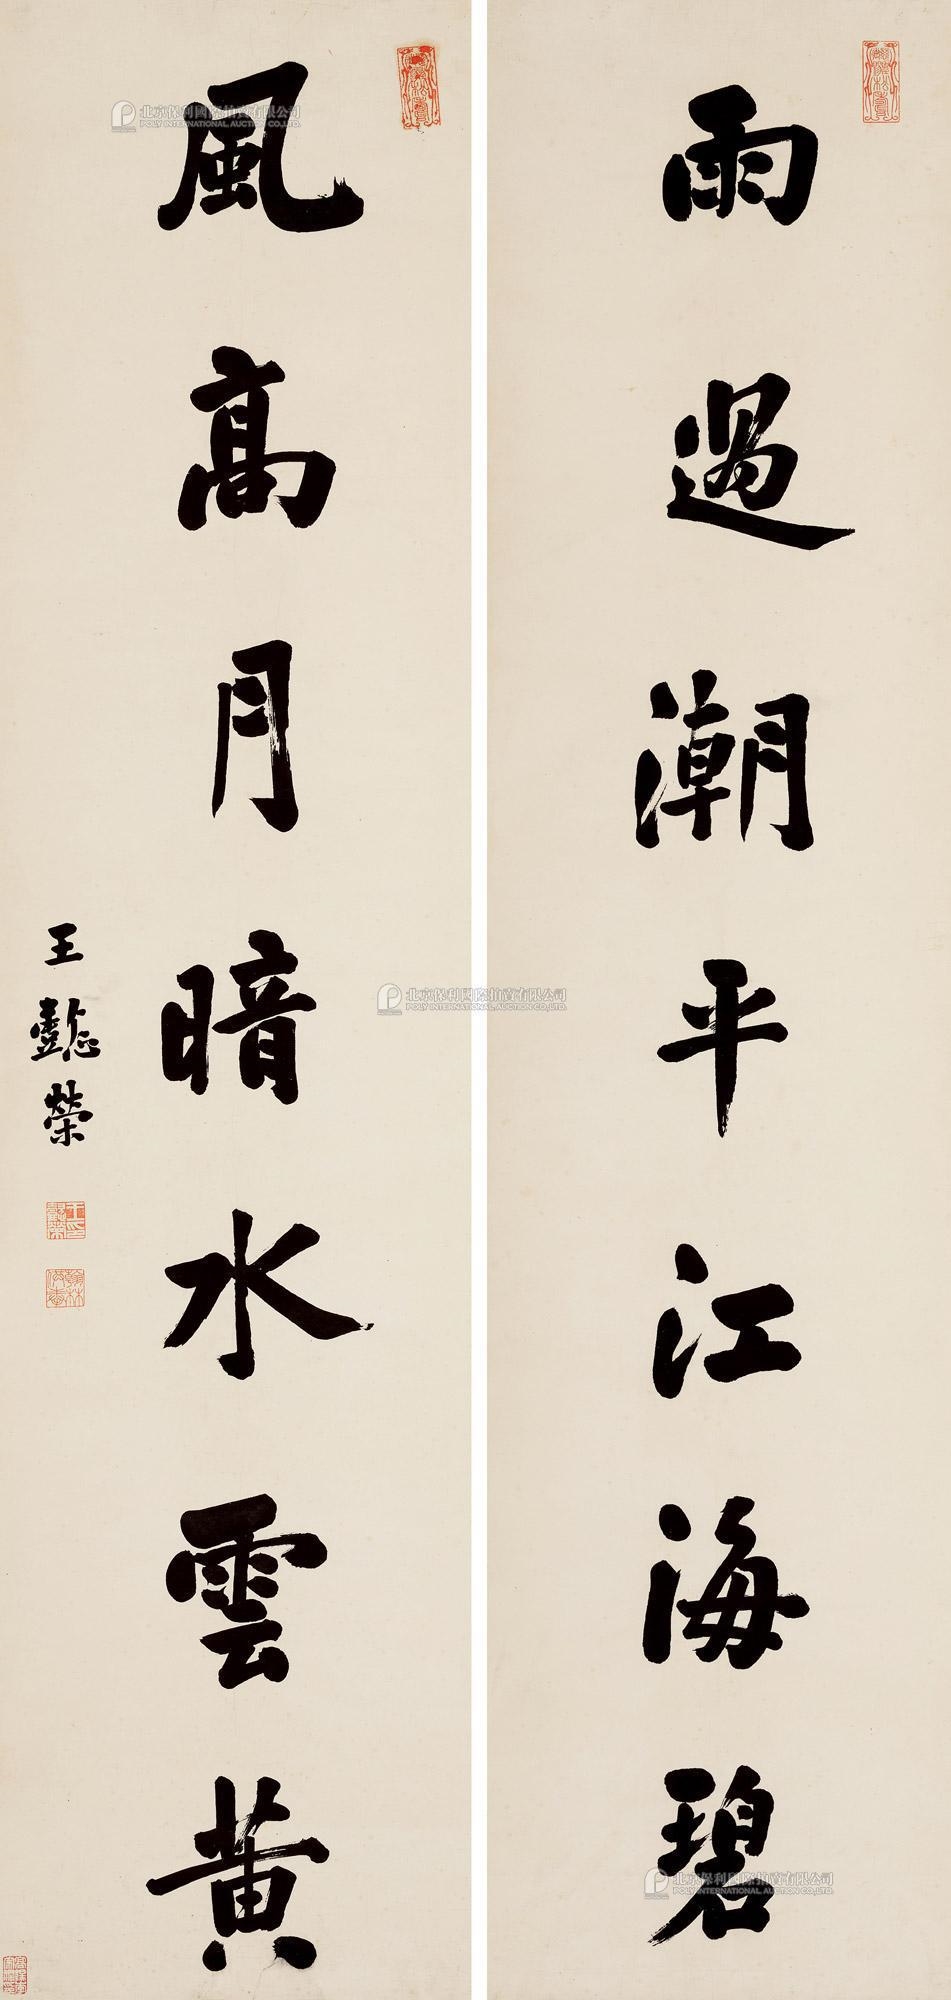 雨過潮平江海碧
風高月暗水雲黃
王懿榮
王懿榮印
翰林供奉
北京保利國際拍賣有限公司
POLY INTERNATIONAL AUCTION CO.,LTD.
北京保利國際拍賣有限公司
POLY INTERNATIONAL AUCTION CO.,LTD.
北京保利國際拍賣有限公司
POLY INTERNATIONAL AUCTION CO.,LTD.